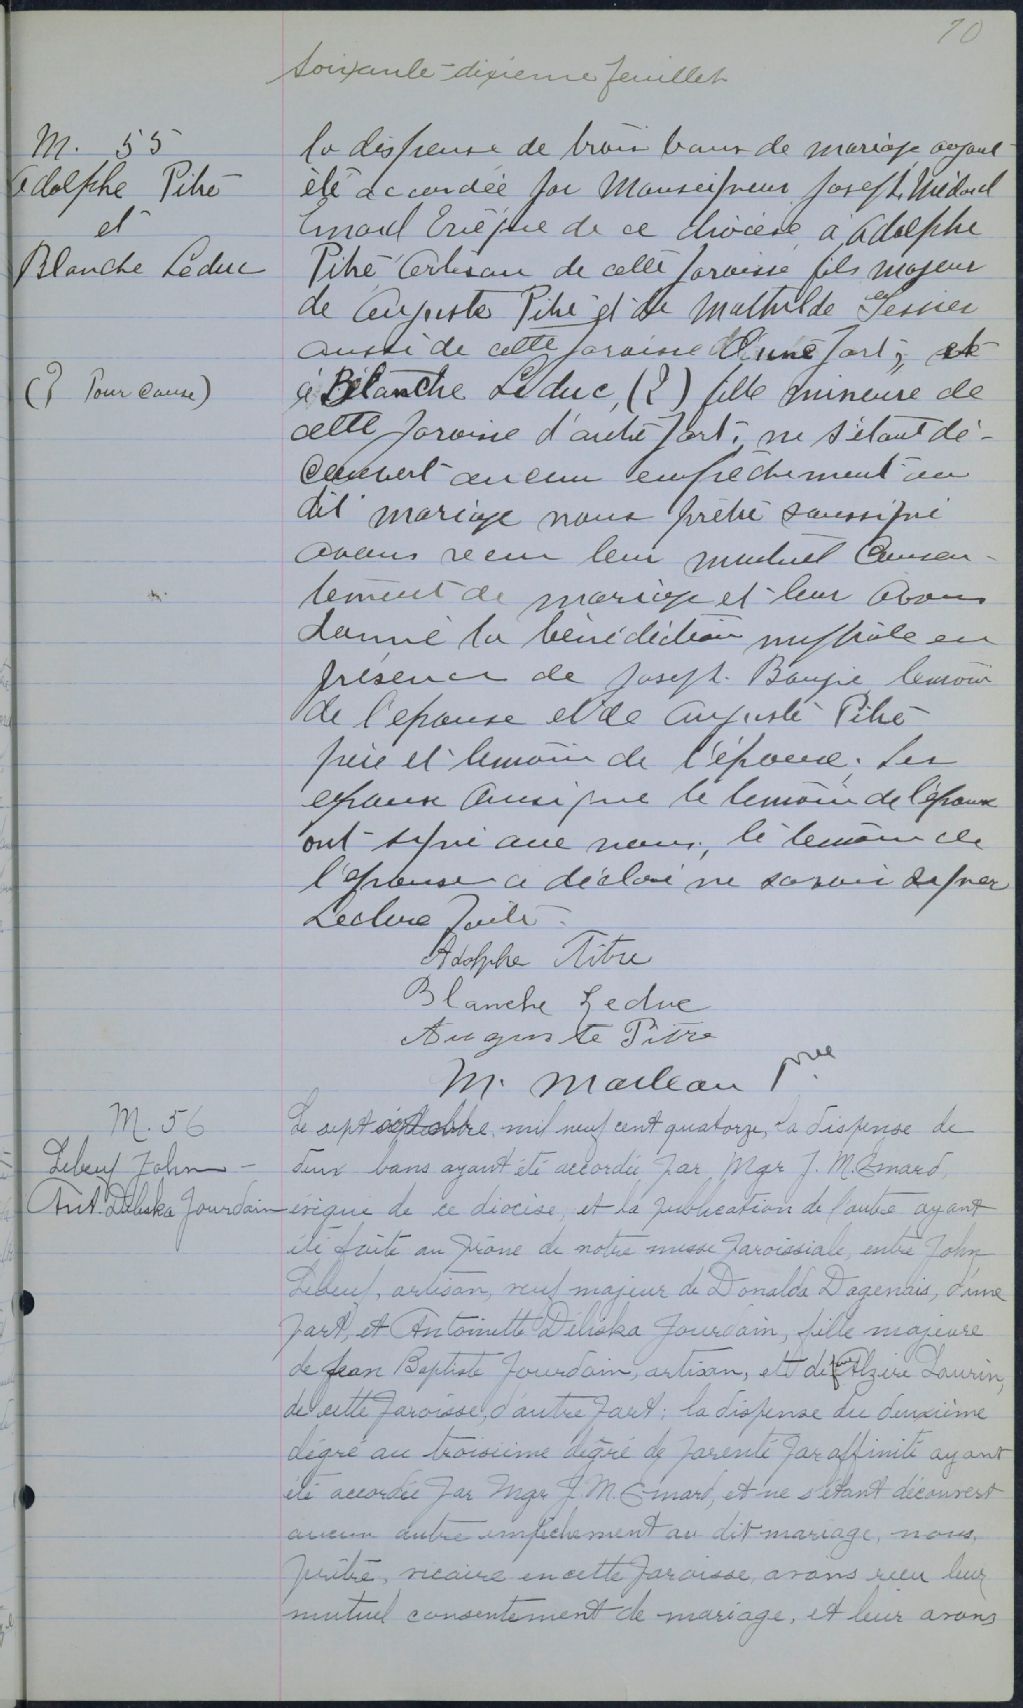 70
Soixante-dixième feuillet
M. 55
Adolphe Pitre
et
Blanche Leduc
(? Pour cause)
la dispense de trois bans de mariage ayant
été accordée par Monseigneur Joseph Médard
Emard Evêque de ce diocèse à Adolphe
Pitre Artisan de cette paroisse fils majeur
de Auguste Pitre et de Mathilde Tessier
aussi de cette paroisse d'une part; et
à Blanche Leduc, (?) fille mineure de
cette paroisse d'autre part; ne s'étant dé-
couvert aucun empêchement au
dit mariage nous prêtre soussigné
avons reçu leur mutuel consen-
tement de mariage et leur avons
donné la bénédiction nuptiale en
présence de Joseph Bougie témoin
de l'épouse et de Auguste Pitre
père et témoin de l'époux; Les
époux ainsi que le témoin de l'époux
ont signé avec nous, le témoin de
l'épouse a déclaré ne savoir signer
Lecture faite.
Adolphe Pitre
Blanche Leduc
Auguste Pitre
M. Mailean Ptre
M. 56
Lebeuf John -
Ant. Déliska Jourdain
Le sept septembre, mil neuf cent quatorze, la dispense de
deux bans ayant été accordée par Mgr J. M. Emard,
évêque de ce diocèse, et la publication de l'autre ayant
été faite au prône de notre messe paroissiale, entre John
Lebeuf, artisan, veuf majeur de Donalda Dagenais, d'une
part, et Antoinette Déliska Jourdain, fille majeure
de Jean Baptiste Jourdain, artisan, et de feue Alzire Laurin,
de cette paroisse, d'autre part; la dispense du deuxième
dégré au troisième dégré de parenté par affinité ayant
été accordée par Mgr J. M. Emard, et ne s'étant découvert
aucun autre empêchement au dit mariage, nous,
prêtre, vicaire en cette paroisse, avons reçu leur
mutuel consentement de mariage, et leur avons